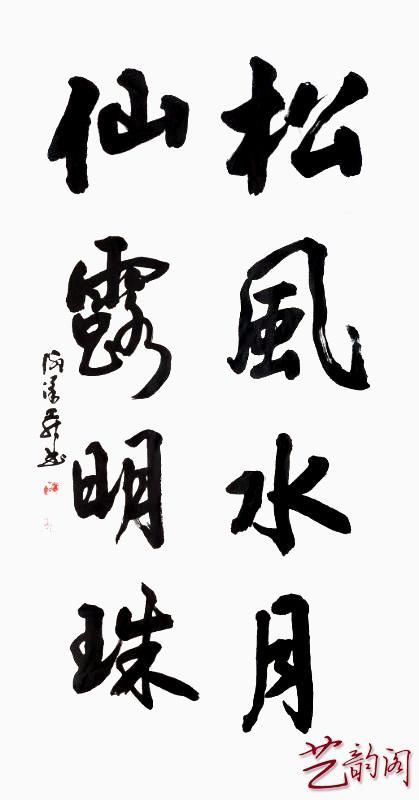 松風水月
仙露明珠
艺韵阁